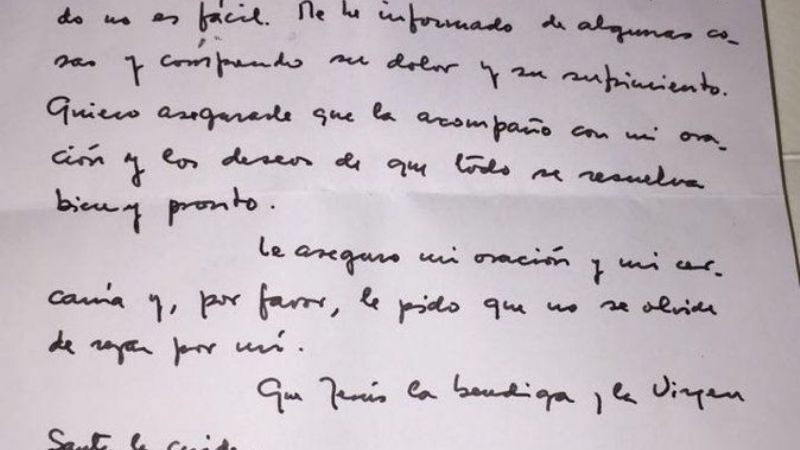 do no es fácil. Me he informado de algunas co-
sas y comprendo su dolor y su sufrimiento.
Quiero asegurarle que la acompaño con mi ora-
ción y los deseos de que todo se resuelva
bien y pronto.
Le aseguro mi oración y mi cer-
canía y, por favor, le pido que no se olvide
de rezar por mí.
Que Jesús la bendiga y la Virgen
Santa la cuide